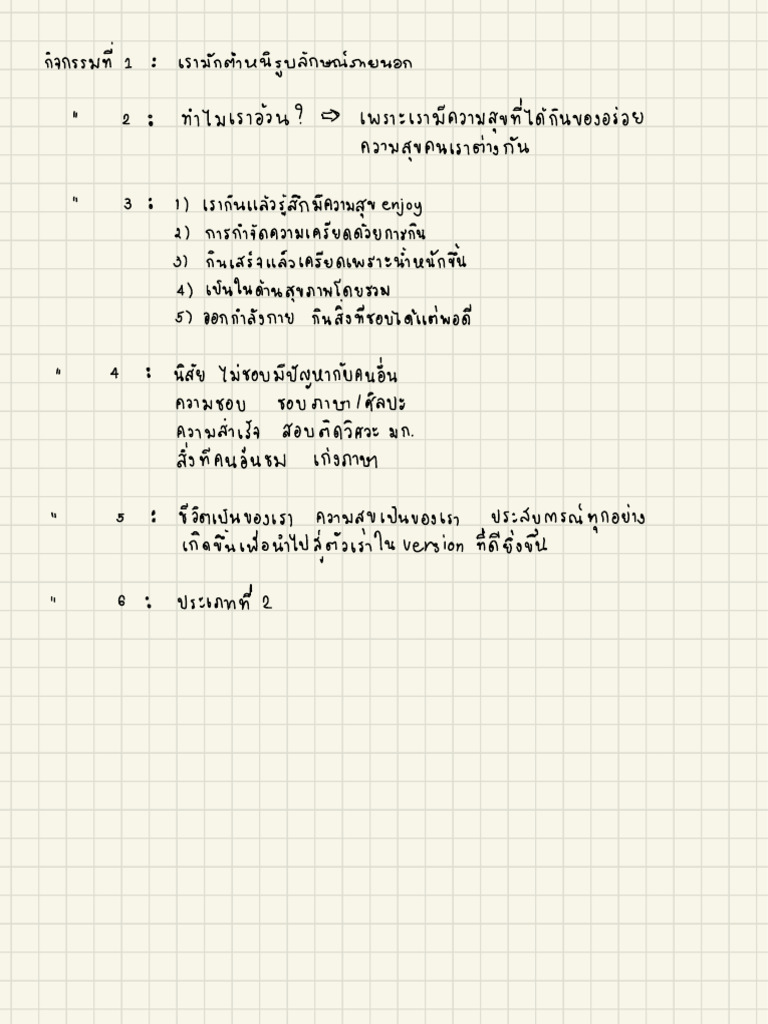 กิจกรรมที่ 1 : เรามักตำหนิรูปลักษณ์ภายนอก
" 2 : ทำไมเราอ้วน? ⇨ เพราะเรามีความสุขที่ได้กินของอร่อย
ความสุขคนเราต่างกัน
" 3 : 1) เรากินแล้วรู้สึกมีความสุข enjoy
2) การกำจัดความเครียดด้วยการกิน
3) กินเสร็จแล้วเครียดเพราะน้ำหนักขึ้น
4) เป็นในด้านสุขภาพโดยรวม
5) ออกกำลังกาย กินสิ่งที่ชอบได้แต่พอดี
" 4 : นิสัย ไม่ชอบมีปัญหากับคนอื่น
ความชอบ ชอบภาษา/ศิลปะ
ความสำเร็จ สอบติดวิศวะ มก.
สิ่งที่คนอื่นชม เก่งภาษา
" 5 : ชีวิตเป็นของเรา ความสุขเป็นของเรา ประสบการณ์ทุกอย่าง
เกิดขึ้นเพื่อนำไปสู่ตัวเราใน version ที่ดียิ่งขึ้น
" 6 : ประเภทที่ 2